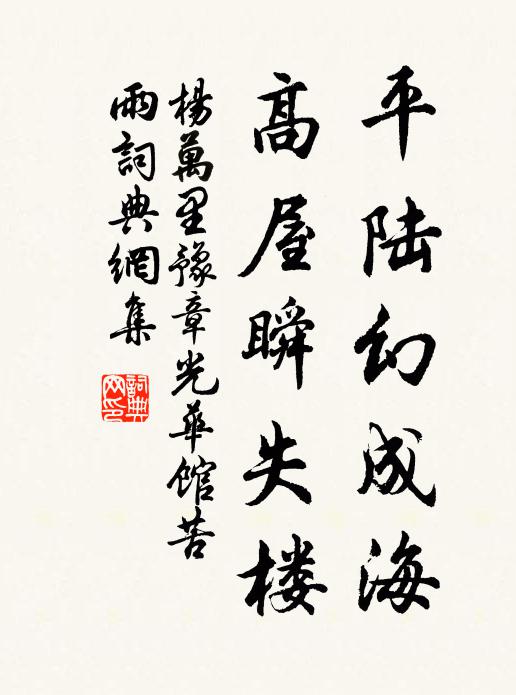 平陆幻成海
高屋瞬失楼
楊萬里豫章光華館苦
雨詞典網集
詞典
网印